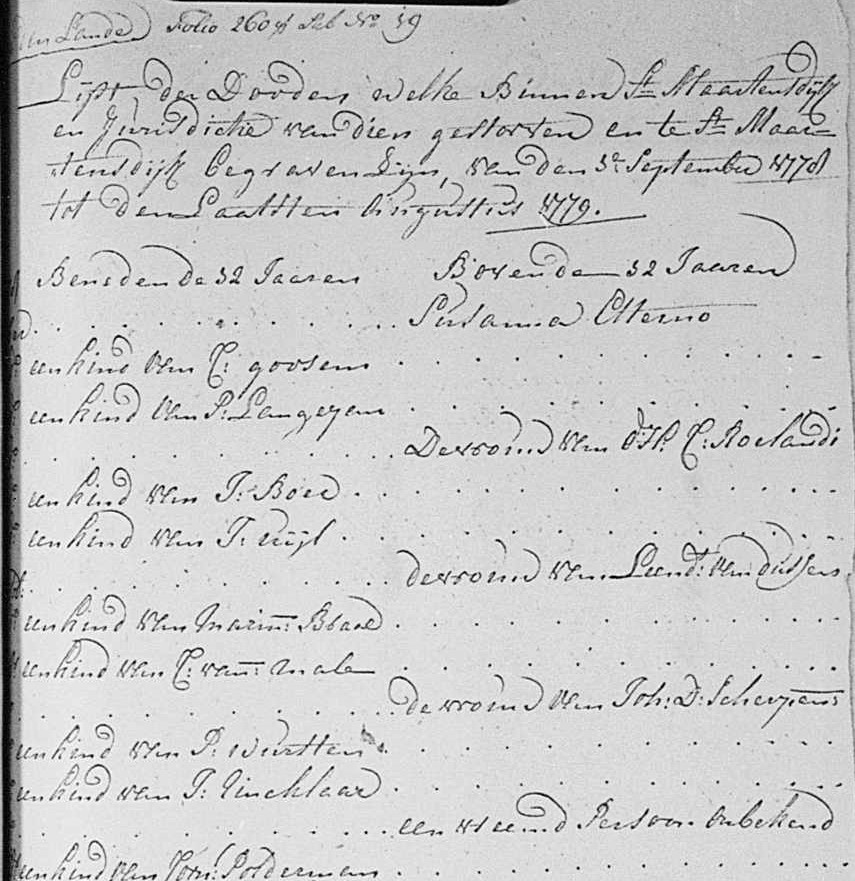 van Lande Folio 260 Lab No. 19
Lijst der Dooden welke Binnen St. Maartensdijk
en Jurisdictie van dien gestorven en te St. Maar=
tensdijk begraven Zijn, van den 3e September 1778
tot den Laatsten Augustus 1779.
Beneden de 32 Jaaren Boven de 32 Jaaren
. . . . . . . . . Susanna
een kind van C: goosens . . . . . . . . .
een kind van P: Langeyen . . . . . . . . .
. . . . . . . . . De vrouw van C: Roelandi
een kind van J: Boer . . . . . . . . .
een kind van J: . . . . . . . . .
. . . . . . . . . de vrouw van Leend: van dussen
een kind van Marin: . . . . . . . . .
een kind van C: van male . . . . . . . . .
. . . . . . . . . de vrouw van Joh: D: Scherpens
een kind van P: . . . . . . . . .
een kind van J: . . . . . . . . .
. . . . . . . . . een vreemd Persoon Onbekend
een kind van Corn: Polderman . . . . . . . . .